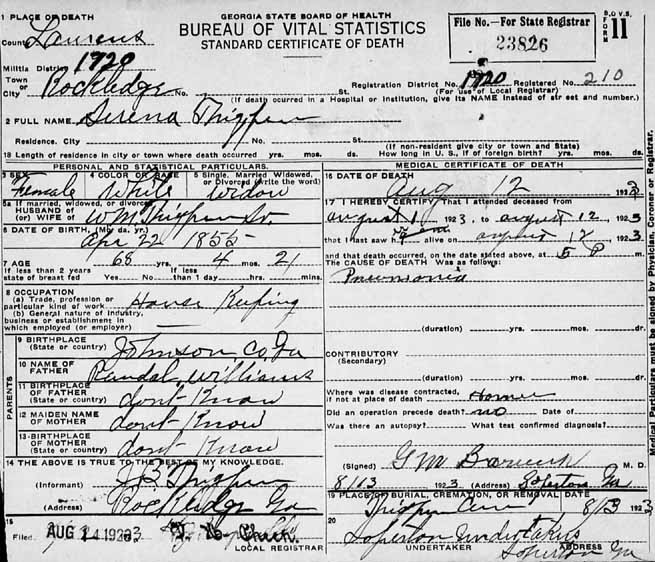 GEORGIA STATE BOARD OF HEALTH
BUREAU OF VITAL STATISTICS
STANDARD CERTIFICATE OF DEATH
File No.—For State Registrar
23826
B.O.V.S. FORM 11
1 PLACE OF DEATH
County Laurens
Militia District 1720
Town or City Rockledge No. St.
Registration District No. 1720 Registered No. 210
(For use of Local Registrar)
(If death occurred in a Hospital or Institution, give its NAME instead of street and number.)
2 FULL NAME Serena Thigpen
Residence. City No. St.
(If non-resident give city or town and State)
18 Length of residence in city or town where death occurred yrs. mos. ds. How long in U. S., if of foreign birth? yrs. mos. ds.
PERSONAL AND STATISTICAL PARTICULARS.
3 SEX Female
4 COLOR OR RACE White
5 Single, Married, Widowed, or Divorced (write the word) Widow
5a If married, widowed, or divorced
HUSBAND of (or) WIFE of W M Thigpen Sr.
6 DATE OF BIRTH. (Mo. da. yr.) Apr 22 1855
7 AGE 68 yrs. 4 mos. 21
If less than 2 years state of breast fed Yes No If less than 1 day hrs. mins.
8 OCCUPATION
(a) Trade, profession or particular kind of work House Keeping
(b) General nature of industry, business or establishment in which employed (or employer)
PARENTS
9 BIRTHPLACE (State or country) Johnson Co, Ga
10 NAME OF FATHER Randal Williams
11 BIRTHPLACE OF FATHER (State or country) dont Know
12 MAIDEN NAME OF MOTHER dont Know
13-BIRTHPLACE OF MOTHER (State or country) dont Know
14 THE ABOVE IS TRUE TO THE BEST OF MY KNOWLEDGE.
(Informant) Thigpen
(Address) Rockledge Ga
15
Filed AUG 14 1923
LOCAL REGISTRAR
MEDICAL CERTIFICATE OF DEATH
16 DATE OF DEATH Aug 12 1923
17 I HEREBY CERTIFY, That I attended deceased from
august 1923, to august 12, 1923
that I last saw h alive on august 12 1923
and that death occurred, on the date stated above, at 5 P m.
The CAUSE OF DEATH Was as follows:
Pneumonia
(duration) yrs. mos. ds.
CONTRIBUTORY
(Secondary)
(duration) yrs. mos. dr.
Where was disease contracted, if not at place of death Home
Did an operation precede death? no Date of
Was there an autopsy? What test confirmed diagnosis?
(Signed) G M M. D.
8/13 1923 (Address) Soperton Ga
19 PLACE OF BURIAL, CREMATION, OR REMOVAL DATE
Thigpen Cem 8/13 1923
20
Soperton Undertakers
UNDERTAKER ADDRESS
Soperton Ga